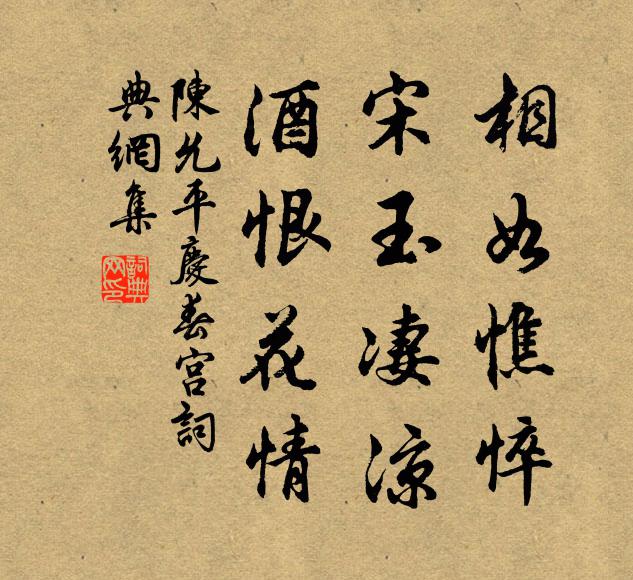 相如憔悴
宋玉凄凉
酒恨花情
陳允平慶春宫詞
典網集
詞典網印